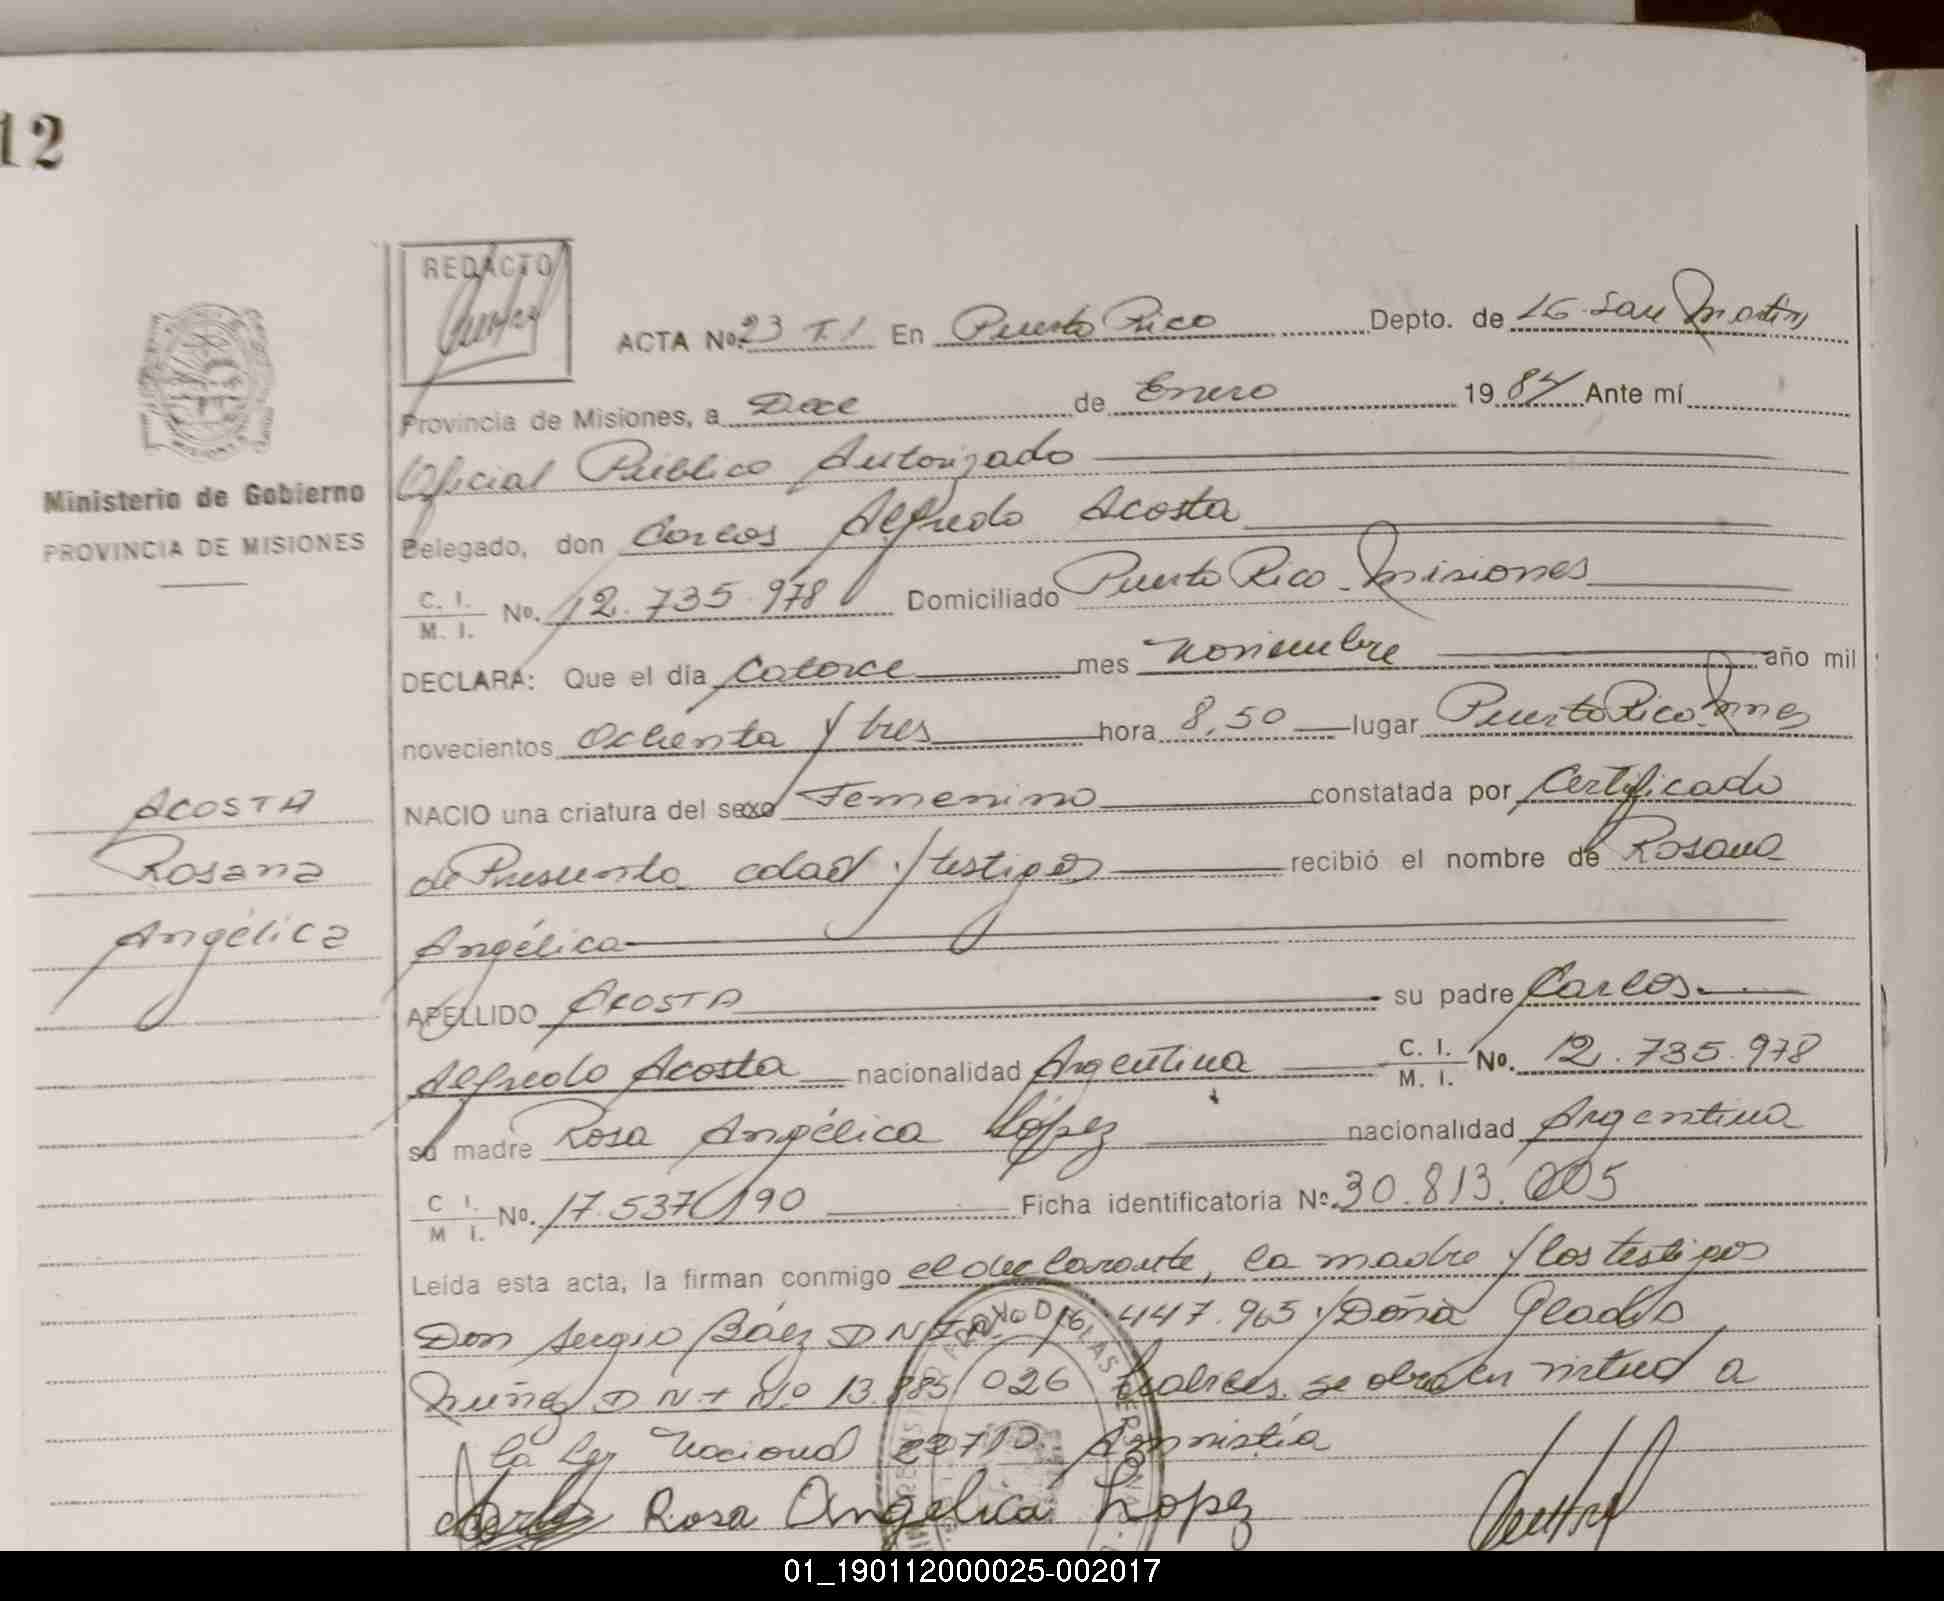 12
REDACTO
ACTA Nº 23 T. I En Puerto Rico Depto. de LG. San Martín
Provincia de Misiones, a Doce de Enero 1984 Ante mí
Oficial Público Autorizado
Delegado, don Carlos Alfredo Acosta
C. I. / M. I. No. 12.735.978 Domiciliado Puerto Rico - Misiones
Ministerio de Gobierno
PROVINCIA DE MISIONES
DECLARA: Que el día Catorce mes Noviembre año mil
novecientos Ochenta y tres hora 8,50 lugar Puerto Rico. Mnes
NACIO una criatura del sexo Femenino constatada por Certificado
de Presunta edad y testigos recibió el nombre de Rosana
Angélica
ACOSTA
Rosana
Angélica
APELLIDO ACOSTA su padre Carlos
Alfredo Acosta nacionalidad Argentina C. I. / M. I. No. 12.735.978
su madre Rosa Angélica López nacionalidad Argentina
C I. / M I. No. 17.537.190 Ficha identificatoria Nº 30.813.005
Leída esta acta, la firman conmigo el declarante, la madre y los testigos
Don Sergio Báez DNI Nº 16.447.965 y Doña Gladis
Nuñez DNI Nº 13.885.026 se obra en virtud a
la Ley Nacional 22710 Amnistía
Rosa Angelica Lopez
01_190112000025-002017